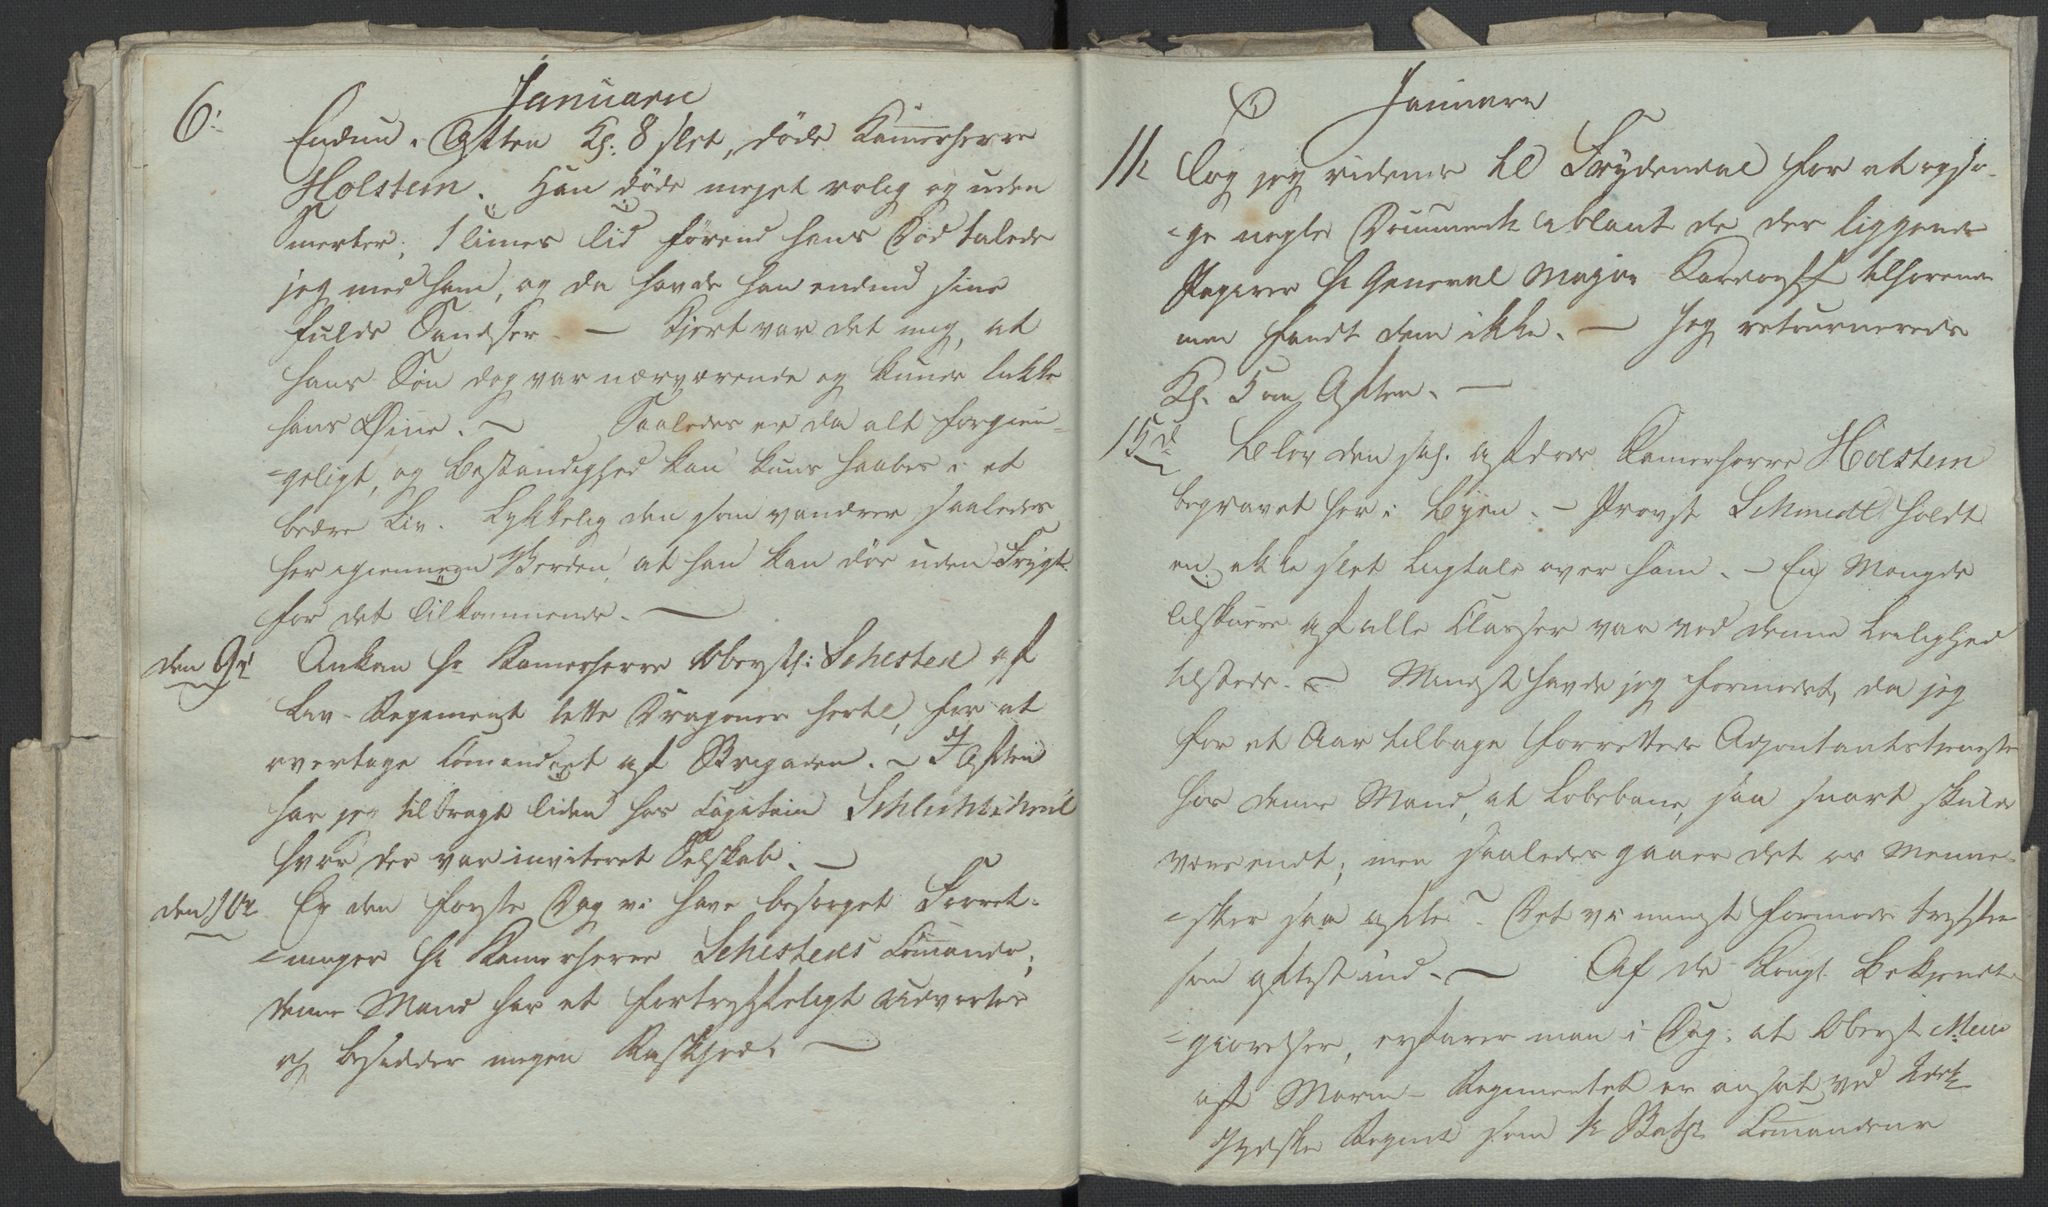 Januarii
6: Endnu i Aften Kl: 8 slet, døde Kamerherre
Holstein. Han døde meget rolig og uden
Smerter; 1 Times Tid førend hans Død talede
jeg med ham, og da havde han endnu sine
fulde Sandser — Kjert var det mig, at
hans Søn dog var nærværende og kunde lukke
hans Øine. — Saaledes er da alt forgien-
=geligt, og Bestandighed kan kuns haabes i et
bedre Liv. Lykkelig den som vandrer saaledes
her igiennem Verden, at han kan døe uden Frygt
for det Tilkommende. —
den 9de Ankom Hr Kamerherre Obrystl: Sehested af
Liv-Regiment lette Dragoner hertil, for at
overtage Comandoet af Brigaden. — I Aften
har jeg tilbragt Tiden hos Capitain
hvor der var inviteret Selskab. —
den 10de Er den første Dag vi have besørget Forret-
=ninger Hr Kamerherre Sehesteds Comando;
denne Mand har et fortreffeligt Udvortes
og besidder megen Raskhed. —
Januarii
11te Tog jeg ridende til Frydendal for at opsø-
=ge nogle Documente iblant de der liggende
Papirer Hr General Major tilhørende
men fandt dem ikke. — Jeg retournerede
Kl. 5 om Aften. —
15de Blev den sal. afdøde Kamerherre Holstein
begravet her i Byen. — Provst Schmidt holdt
en ikke slet Ligtale over ham. — En Mengde
Tilskuere af alle Classer var ved denne Leilighed
tilstede. — Mindst havde jeg formodet, da jeg
for et Aar tilbage forrettede Adjontantstjeneste
hos denne Mand, at Løbebane, saa snart skulde
være endt; men saaledes gaaer det os Menne-
=sker saa ofte. Det vi mindst formode treffer
som oftest ind. — Af de Kongl. Bekjendt-
=giørelser, erfarer man i Dag: at Oberst
af Marin-Regimentet er ansat ved
Jydske Regimt som Comandeur